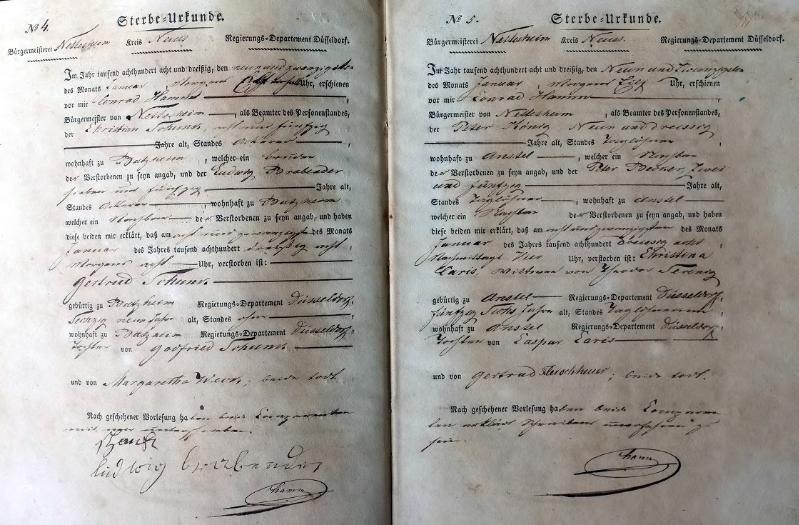 No 4. Sterbe-Urkunde.
Bürgermeisterei Nettesheim Kreis Neuss Regierungs-Departement Düsseldorf.
Im Jahr tausend achthundert acht und dreißig, den neun und zwanzigsten
des Monats Januar Morgens Uhr, erschienen
vor mir Conrad Hamm
Bürgermeister von Nettesheim, als Beamter des Personenstandes,
der Christian acht und fünfzig
Jahre alt, Standes Ackerer
wohnhaft zu Butzheim, welcher ein Bruder
der Verstorbenen zu seyn angab, und der Ludwig
und fünfzig Jahre alt,
Standes Ackerer, wohnhaft zu Butzheim
welcher ein Nachbar der Verstorbenen zu seyn angab, und haben
diese beiden mir erklärt, daß am acht und zwanzigsten des Monats
Januar des Jahres tausend achthundert dreißig acht,
Morgens acht Uhr, verstorben ist:
Gertrud
gebürtig zu Butzheim Regierungs-Departement Düsseldorf,
sechzig neun Jahre alt, Standes ohne
wohnhaft zu Butzheim Regierungs-Departement Düsseldorf,
Tochter von Godfried
und von Margaretha; beide todt.
Nach geschehener Vorlesung haben beide Comparenten
Ludwig
Hamm
No 5. Sterbe-Urkunde.
Bürgermeisterei Nettesheim Kreis Neuss. Regierungs-Departement Düsseldorf.
Im Jahr tausend achthundert acht und dreißig, den Neun und Zwanzigsten
des Monats Januar, Morgens Uhr, erschienen
vor mir Conrad Hamm
Bürgermeister von Nettesheim, als Beamter des Personenstandes,
der Peter König Neun und dreissig
Jahre alt, Standes Taglöhner
wohnhaft zu Anstel, welcher ein Nachbar
der Verstorbenen zu seyn angab, und der Peter Zwei
und fünfzig Jahre alt,
Standes Taglöhner, wohnhaft zu Anstel
welcher ein Nachbar der Verstorbenen zu seyn angab, und haben
diese beiden mir erklärt, daß am acht und zwanzigsten des Monats
Januar des Jahres tausend achthundert Dreissig acht
Nachmittags Vier Uhr, verstorben ist: Christina
Caris, Wittwe von Theodor
gebürtig zu Anstel Regierungs-Departement Düsseldorf,
fünfzig Sechs Jahre alt, Standes
wohnhaft zu Anstel Regierungs-Departement Düsseldorf
Tochter von Caspar Caris
und von Gertrud Fleischhauer; beide todt.
Nach geschehener Vorlesung haben beide Comparen
ten erklärt Schreibens unerfahren zu
sein.
Hamm